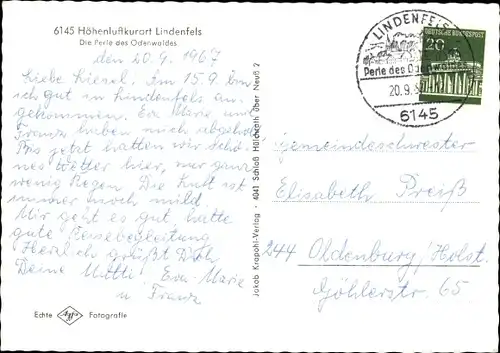 6145 Höhenluftkurort Lindenfels
Die Perle des Odenwaldes
den 20.9.1967
Liebe Liesel. Im 15.9 bin
ich gut in Lindenfels an-
gekommen. Eva-Marie und
Franz haben mich abgeholt
Bis jetzt hatten wir schö-
nes Wetter hier, nur ganz
wenig Regen. Die Luft ist
immer noch mild.
Mir geht es gut, hatte
gute Reisebegleitung
Herzlich grüßt Dich
Deine Mutti, Eva-Marie
u Franz
Echte Agfa Fotografie
Jakob Krapohl-Verlag - 4041 Schloß Hülchrath über Neuß 2
LINDENFELS
Perle des Odenwaldes
20.9.
6145
DEUTSCHE BUNDESPOST
20
Gemeindeschwester
Elisabeth Preiß
244 Oldenburg/Holst.
Göhlerstr. 65